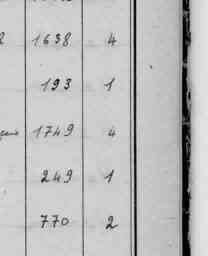 1638 4
193 1
1749 4
249 1
770 2